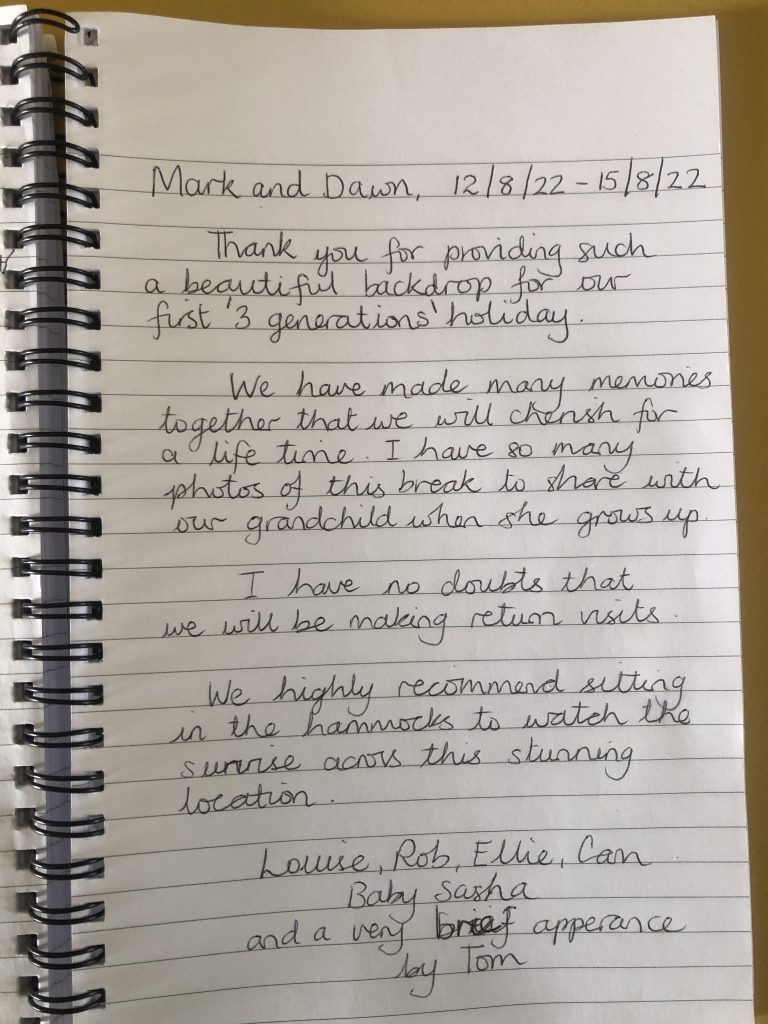 Mark and Dawn, 12/8/22 - 15/8/22
Thank you for providing such
a beautiful backdrop for our
first '3 generations' holiday.
We have made many memories
together that we will cherish for
a life time. I have so many
photos of this break to share with
our grandchild when she grows up.
I have no doubts that
we will be making return visits.
We highly recommend sitting
in the hammocks to watch the
sunrise across this stunning
location.
Louise, Rob, Ellie, Can
Baby Sasha
and a very brief apperance
by Tom